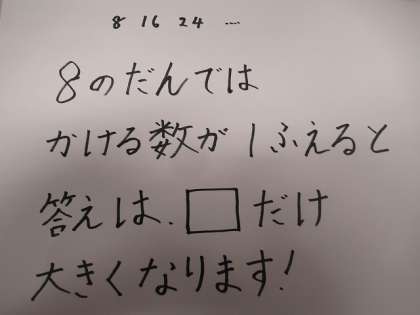 8 16 24 ....
8のだんでは
かける数が1ふえると
答えは、□だけ
大きくなります!